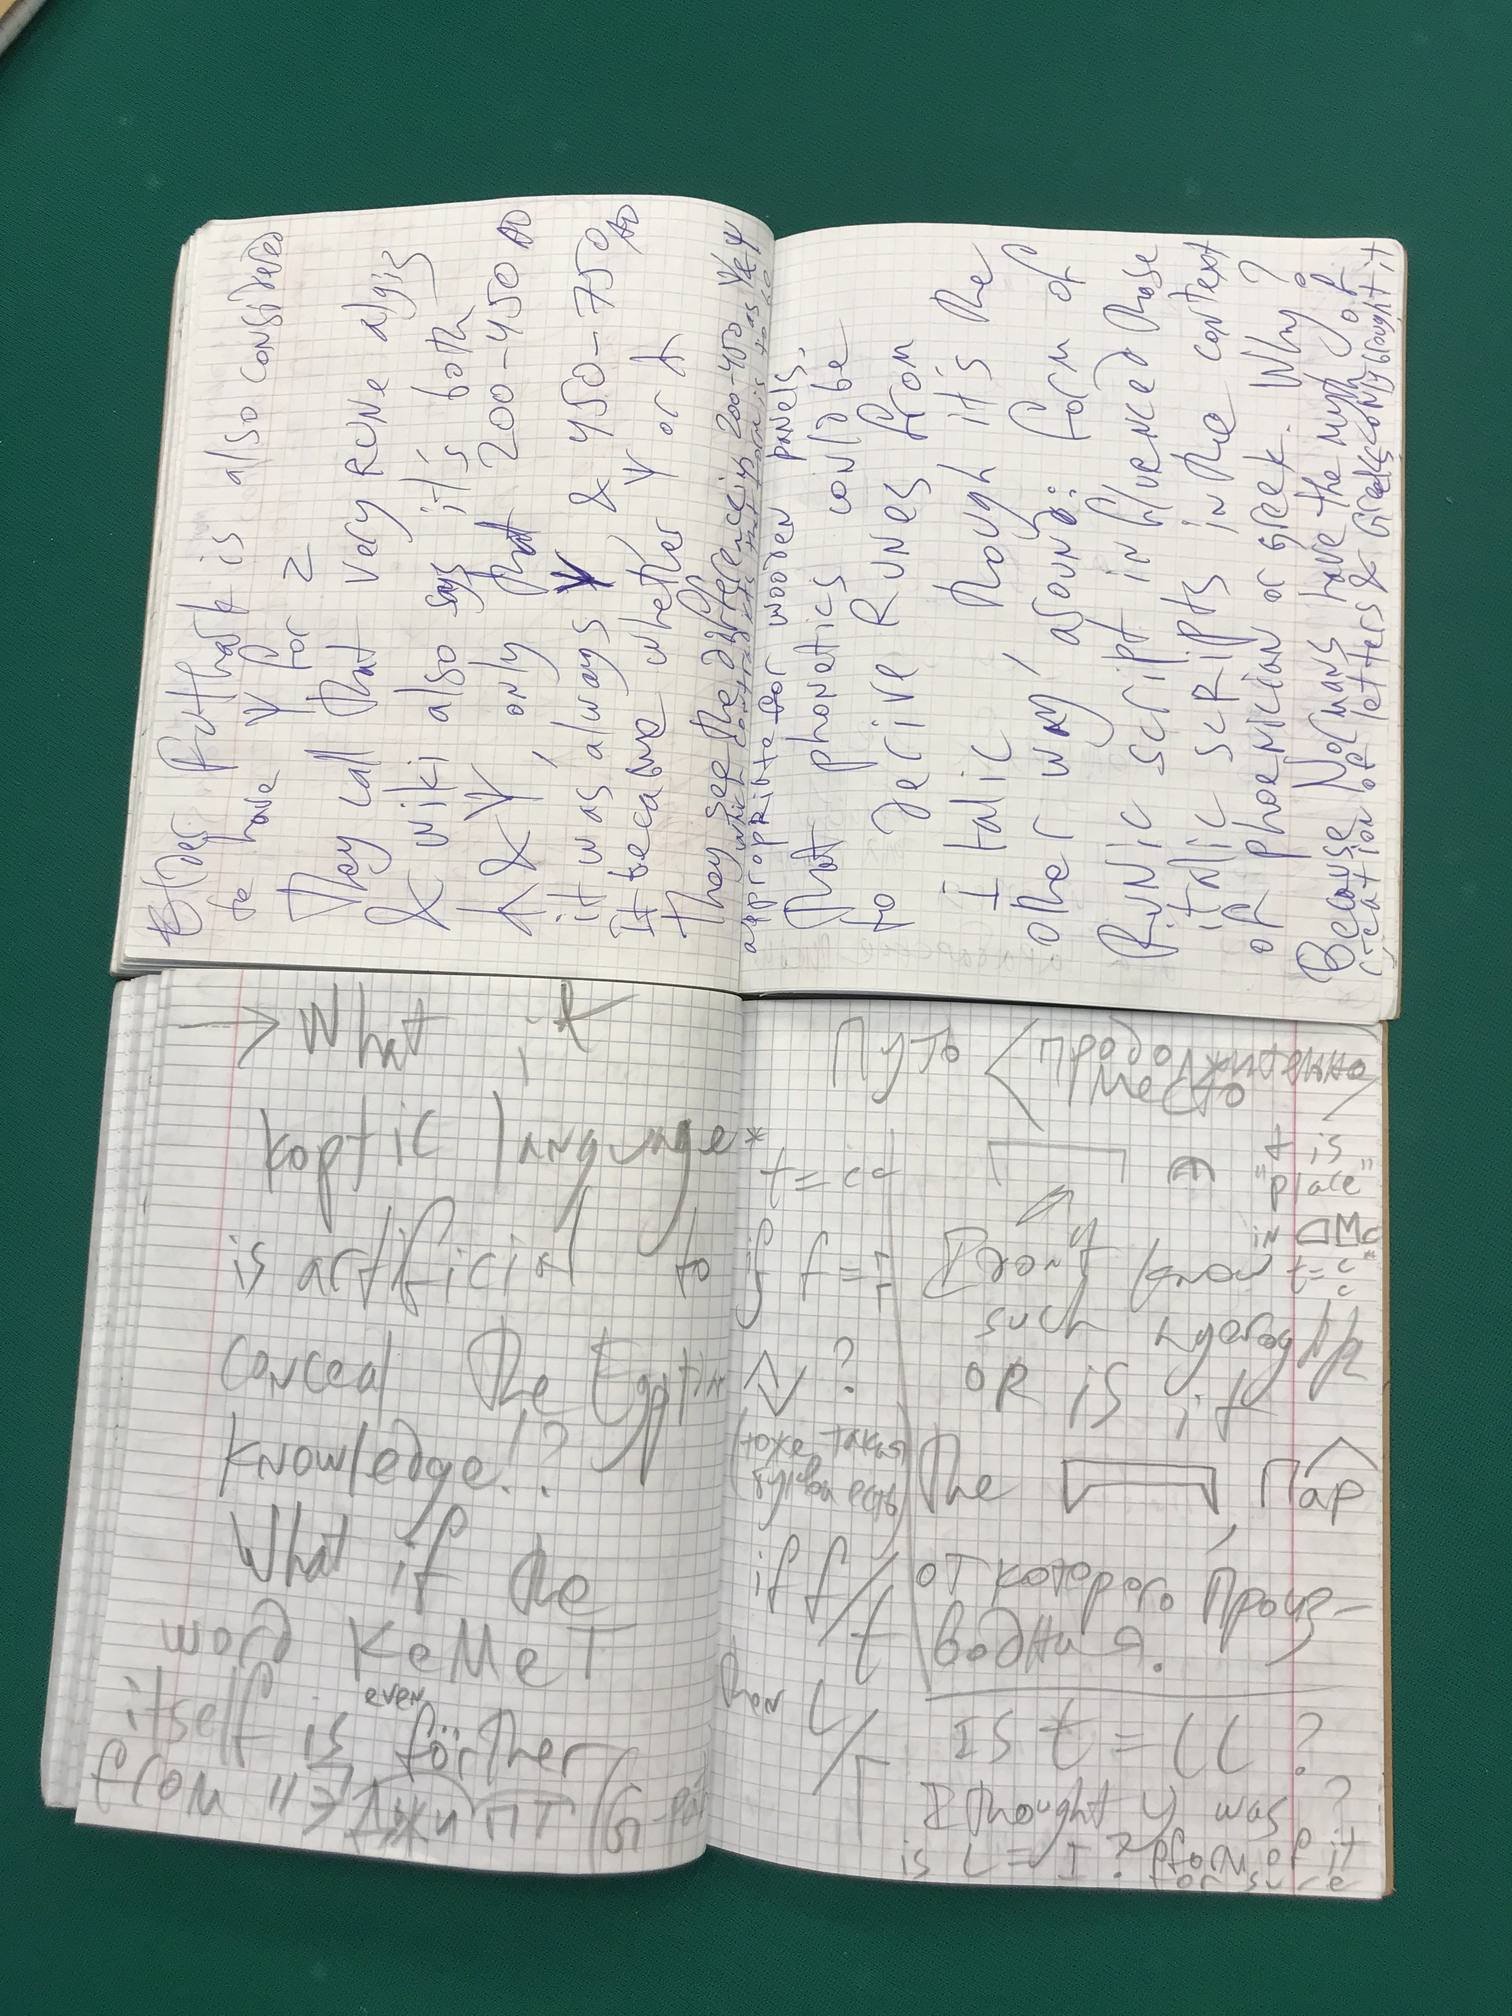 Elder Futhark is also considered
to have Ψ for z
They call that very RUNE algiz
& wiki also says it's both
& Ψ, only that 200-450 AD
it was always Ψ & 450-750 AD
It became whether Ψ or
They see the difference in 200-450
appropriate for wooden panels.
That phonetics could be
to derive Runes from
Italic, though it's the
other way around: form of
Runic script influenced those
italic scripts in the context
of phoenician or Greek. Why?
Because Normans have the myth of
creation of letters & Greeks commly brought it
→ What if
koptic language*
is artificial to
conceal the Egyptian
knowledge!?
What if the
word KeMeT
itself is even förther
from "ЭДжиПТ
Путь
продолжительно
место
t = cc
"t is
place"
if f =
I don't know
such hyeroglyph
OR is it
?
(тоже такая
буква есть)
the
Пар,
if f/t
от которого Произ-
водния.
then
Is t = CC ?
I thought y was ?
is L = I ? form of it
for sure